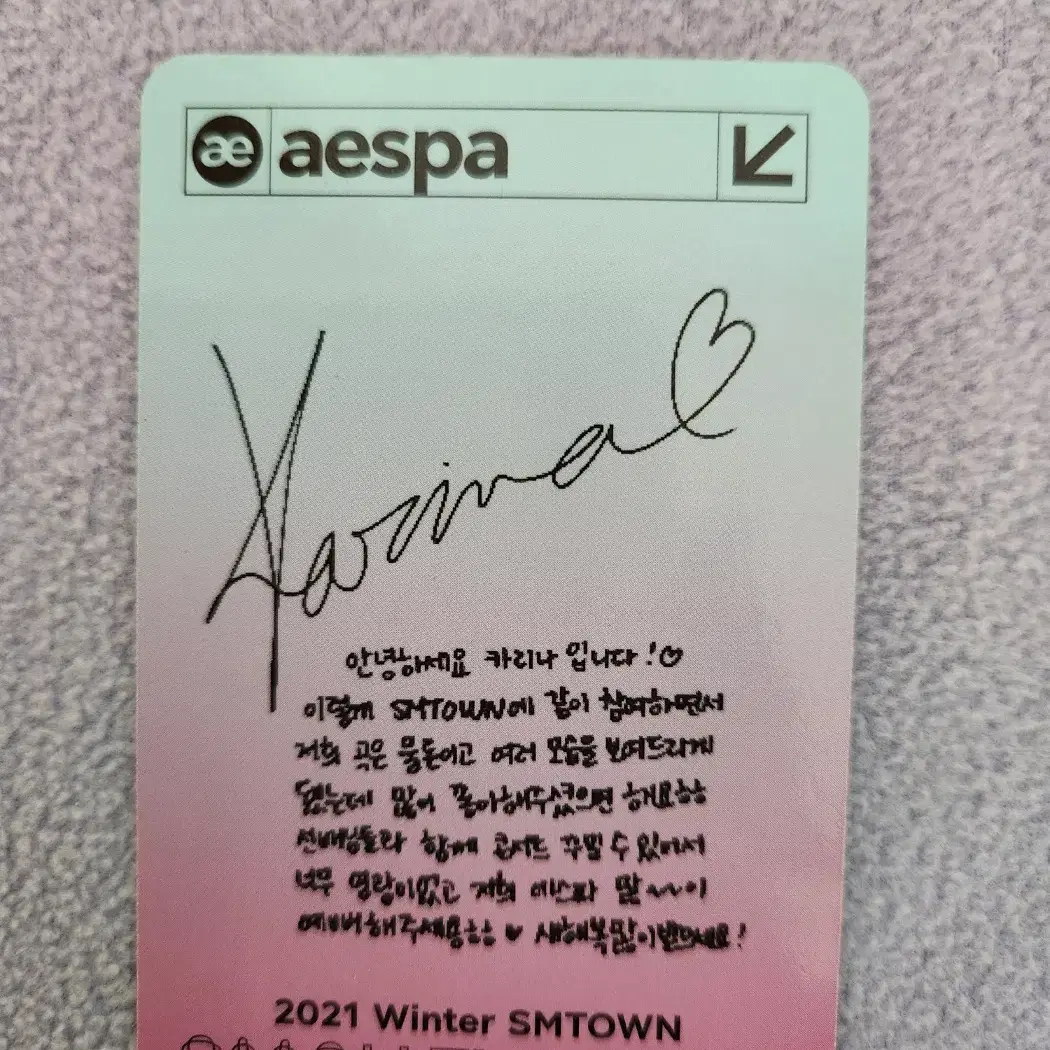 æ aespa
Karina
안녕하세요 카리나 입니다!♡
이렇게 SMTOWN에 같이 참여하면서
저희 곡은 물론이고 여러 모습을 보여드리게
됐는데 많이 좋아해주셨으면 해요ㅎㅎ
선배님들과 함께 콘서트 꾸밀 수 있어서
너무 영광이었고 저희 에스파 많~~이
예뻐해주세용ㅎㅎ ♥ 새해복많이받으세요!
2021 Winter SMTOWN